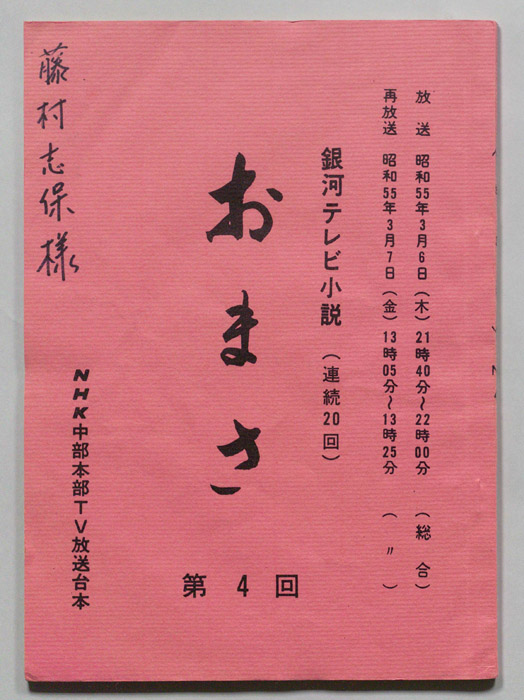 放送 昭和55年3月6日(木) 21時40分~22時00分 (総合)
再放送 昭和55年3月7日(金) 13時05分~13時25分 (〃)
銀河テレビ小説 (連続20回)
おまさ
第4回
NHK中部本部TV放送台本
藤村志保様